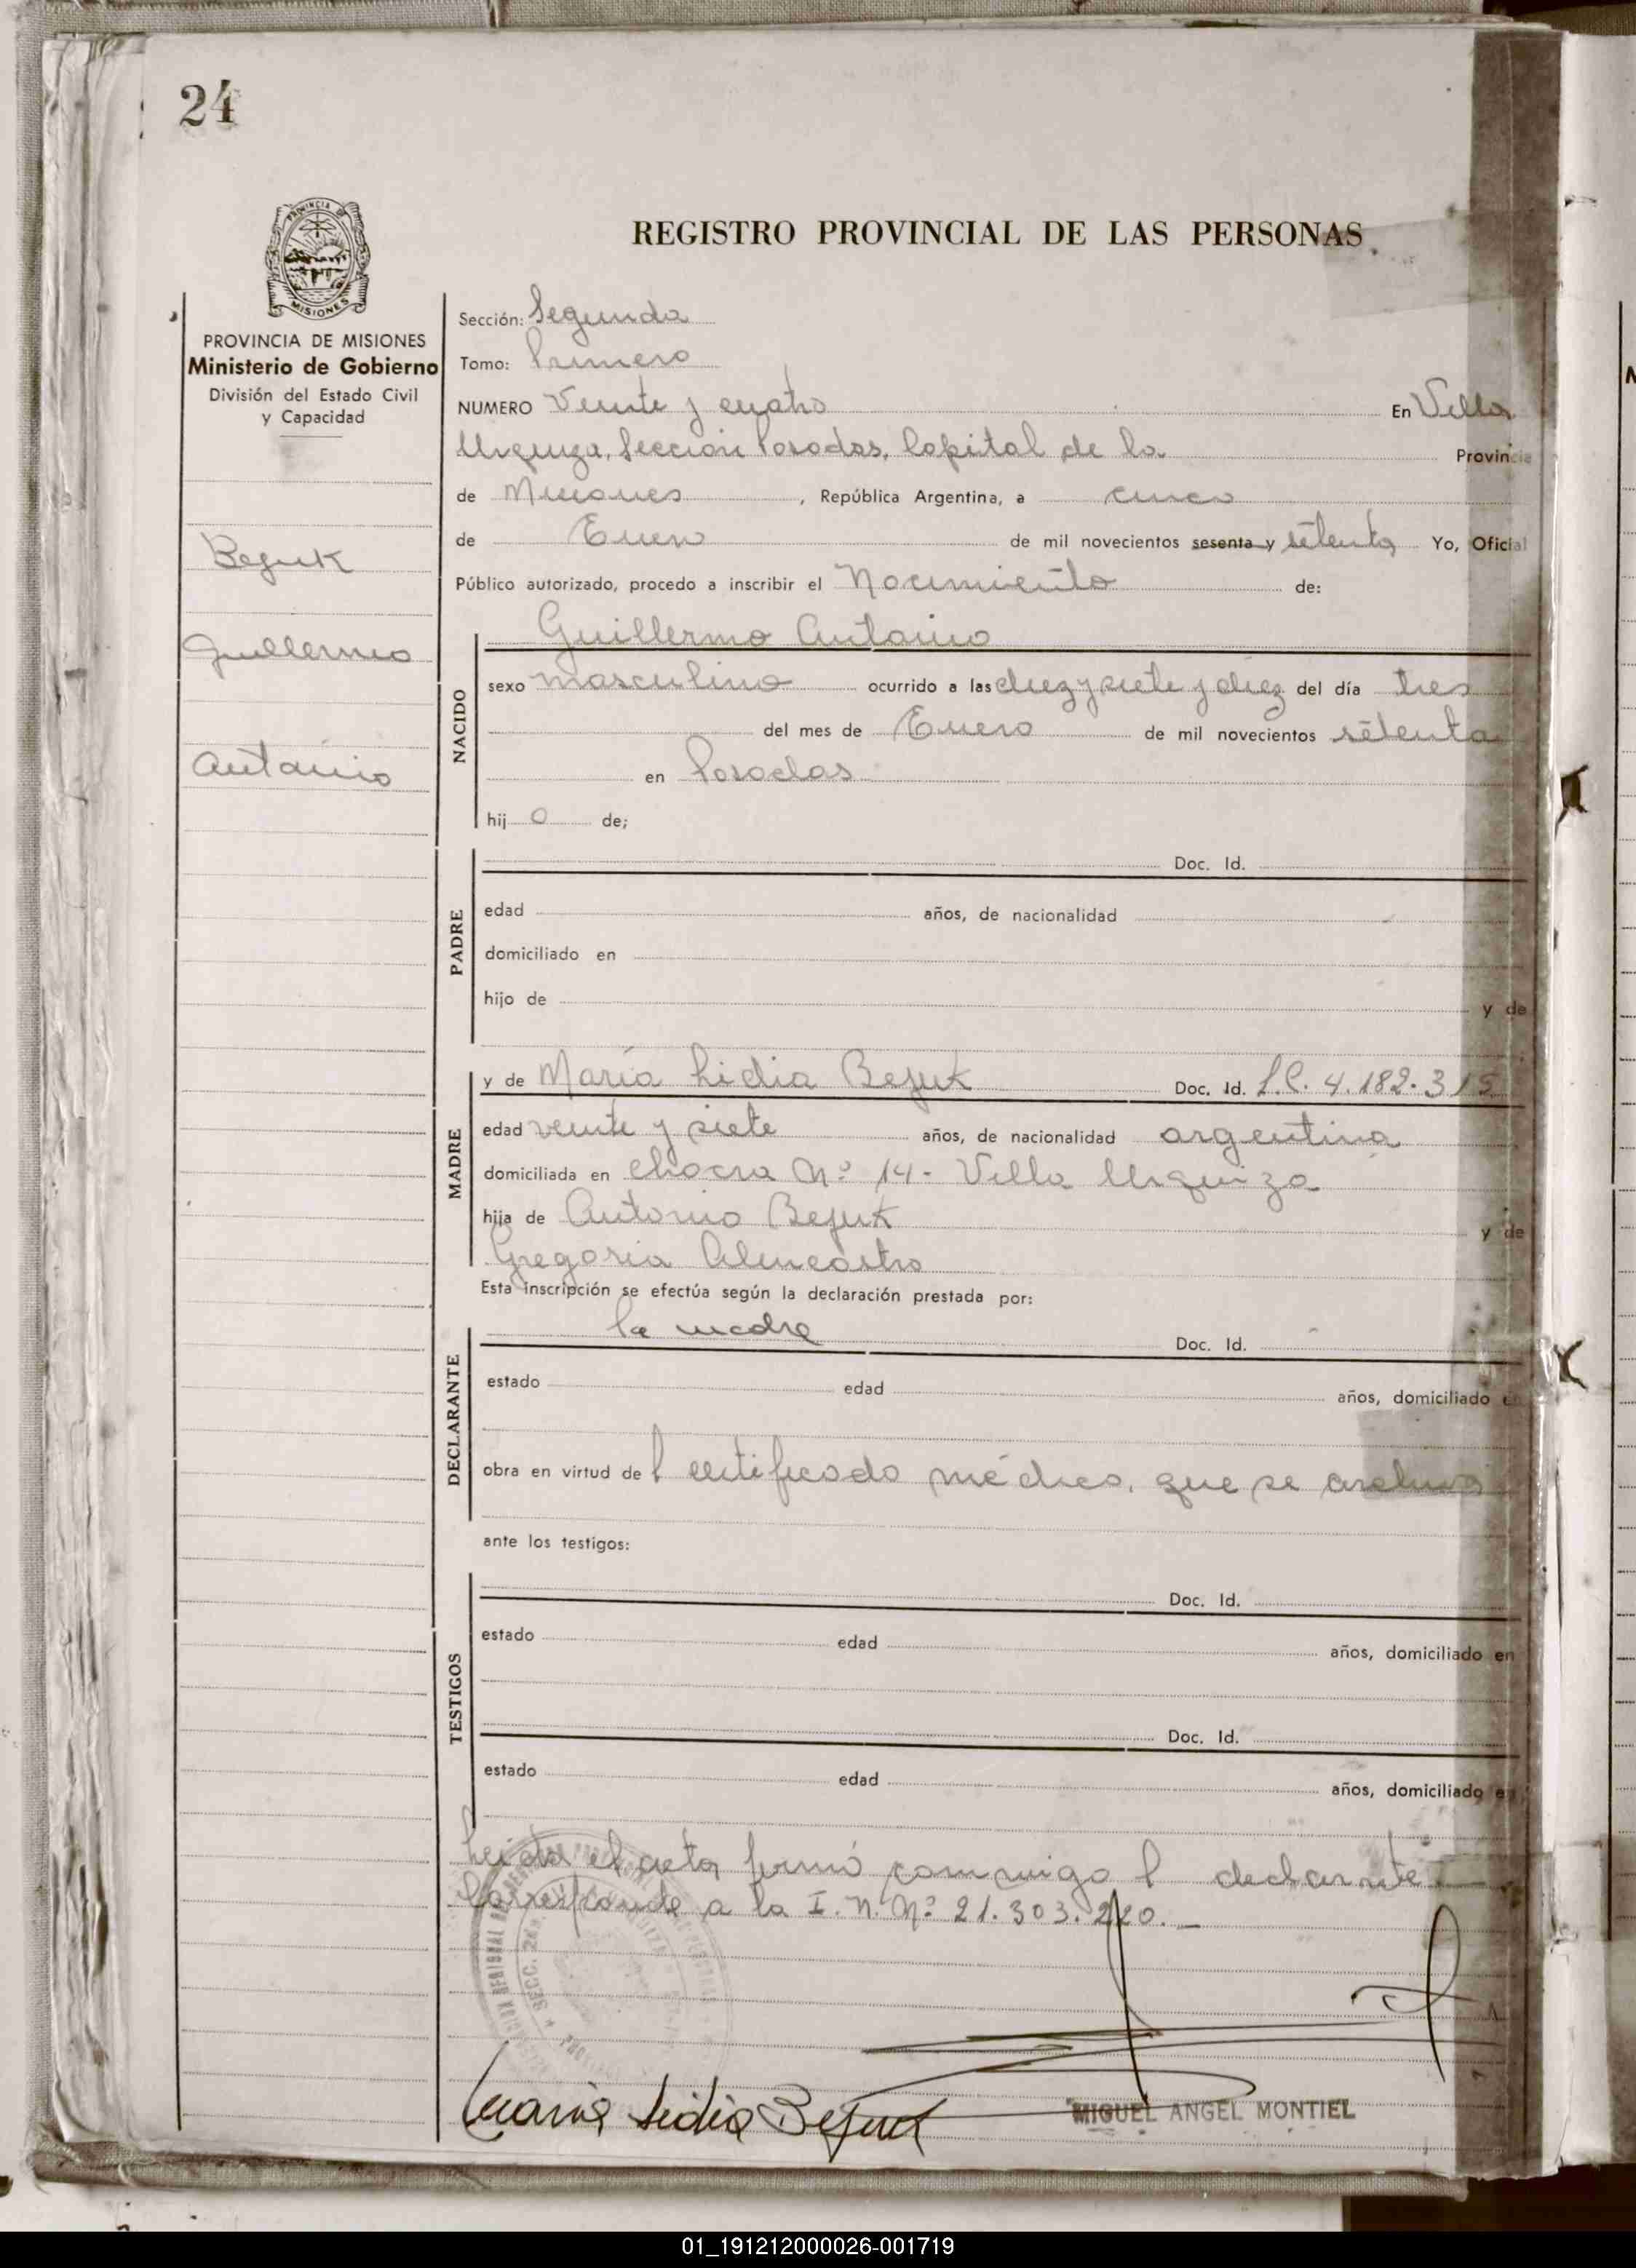 24
PROVINCIA DE
MISIONES
REGISTRO PROVINCIAL DE LAS PERSONAS
PROVINCIA DE MISIONES
Ministerio de Gobierno
División del Estado Civil
y Capacidad
Bejuk
Guillermo
Antonio
Sección: Segunda
Tomo: Primero
NUMERO Veinte y cuatro En Villa
Urquiza, Sección Posadas, Capital de la Provincia
de Misiones, República Argentina, a cinco
de Enero de mil novecientos sesenta y setenta Yo, Oficial
Público autorizado, procedo a inscribir el Nacimiento de:
NACIDO
Guillermo Antonio
sexo masculino ocurrido a las diez y siete y diez del día tres
del mes de Enero de mil novecientos setenta
en Posadas
hijo de;
PADRE
Doc. Id.
edad años, de nacionalidad
domiciliado en
hijo de y de
MADRE
y de María Lidia Bejuk Doc. Id. L.C. 4.182.315
edad veinte y siete años, de nacionalidad argentina
domiciliada en chacra Nº 14- Villa Urquiza
hija de Antonio Bejuk y de
Gregoria Almeastro
Esta inscripción se efectúa según la declaración prestada por:
DECLARANTE
la madre Doc. Id.
estado edad años, domiciliado en
obra en virtud del certificado médico, que se archiva
ante los testigos:
TESTIGOS
Doc. Id.
estado edad años, domiciliado en
Doc. Id.
estado edad años, domiciliado en
Leida el acta firmó conmigo l declarante
Corresponde a la I. N. Nº 21.303.220.
SECC. 2a.
Maria Lidia Bejuk
MIGUEL ANGEL MONTIEL
01_191212000026-001719